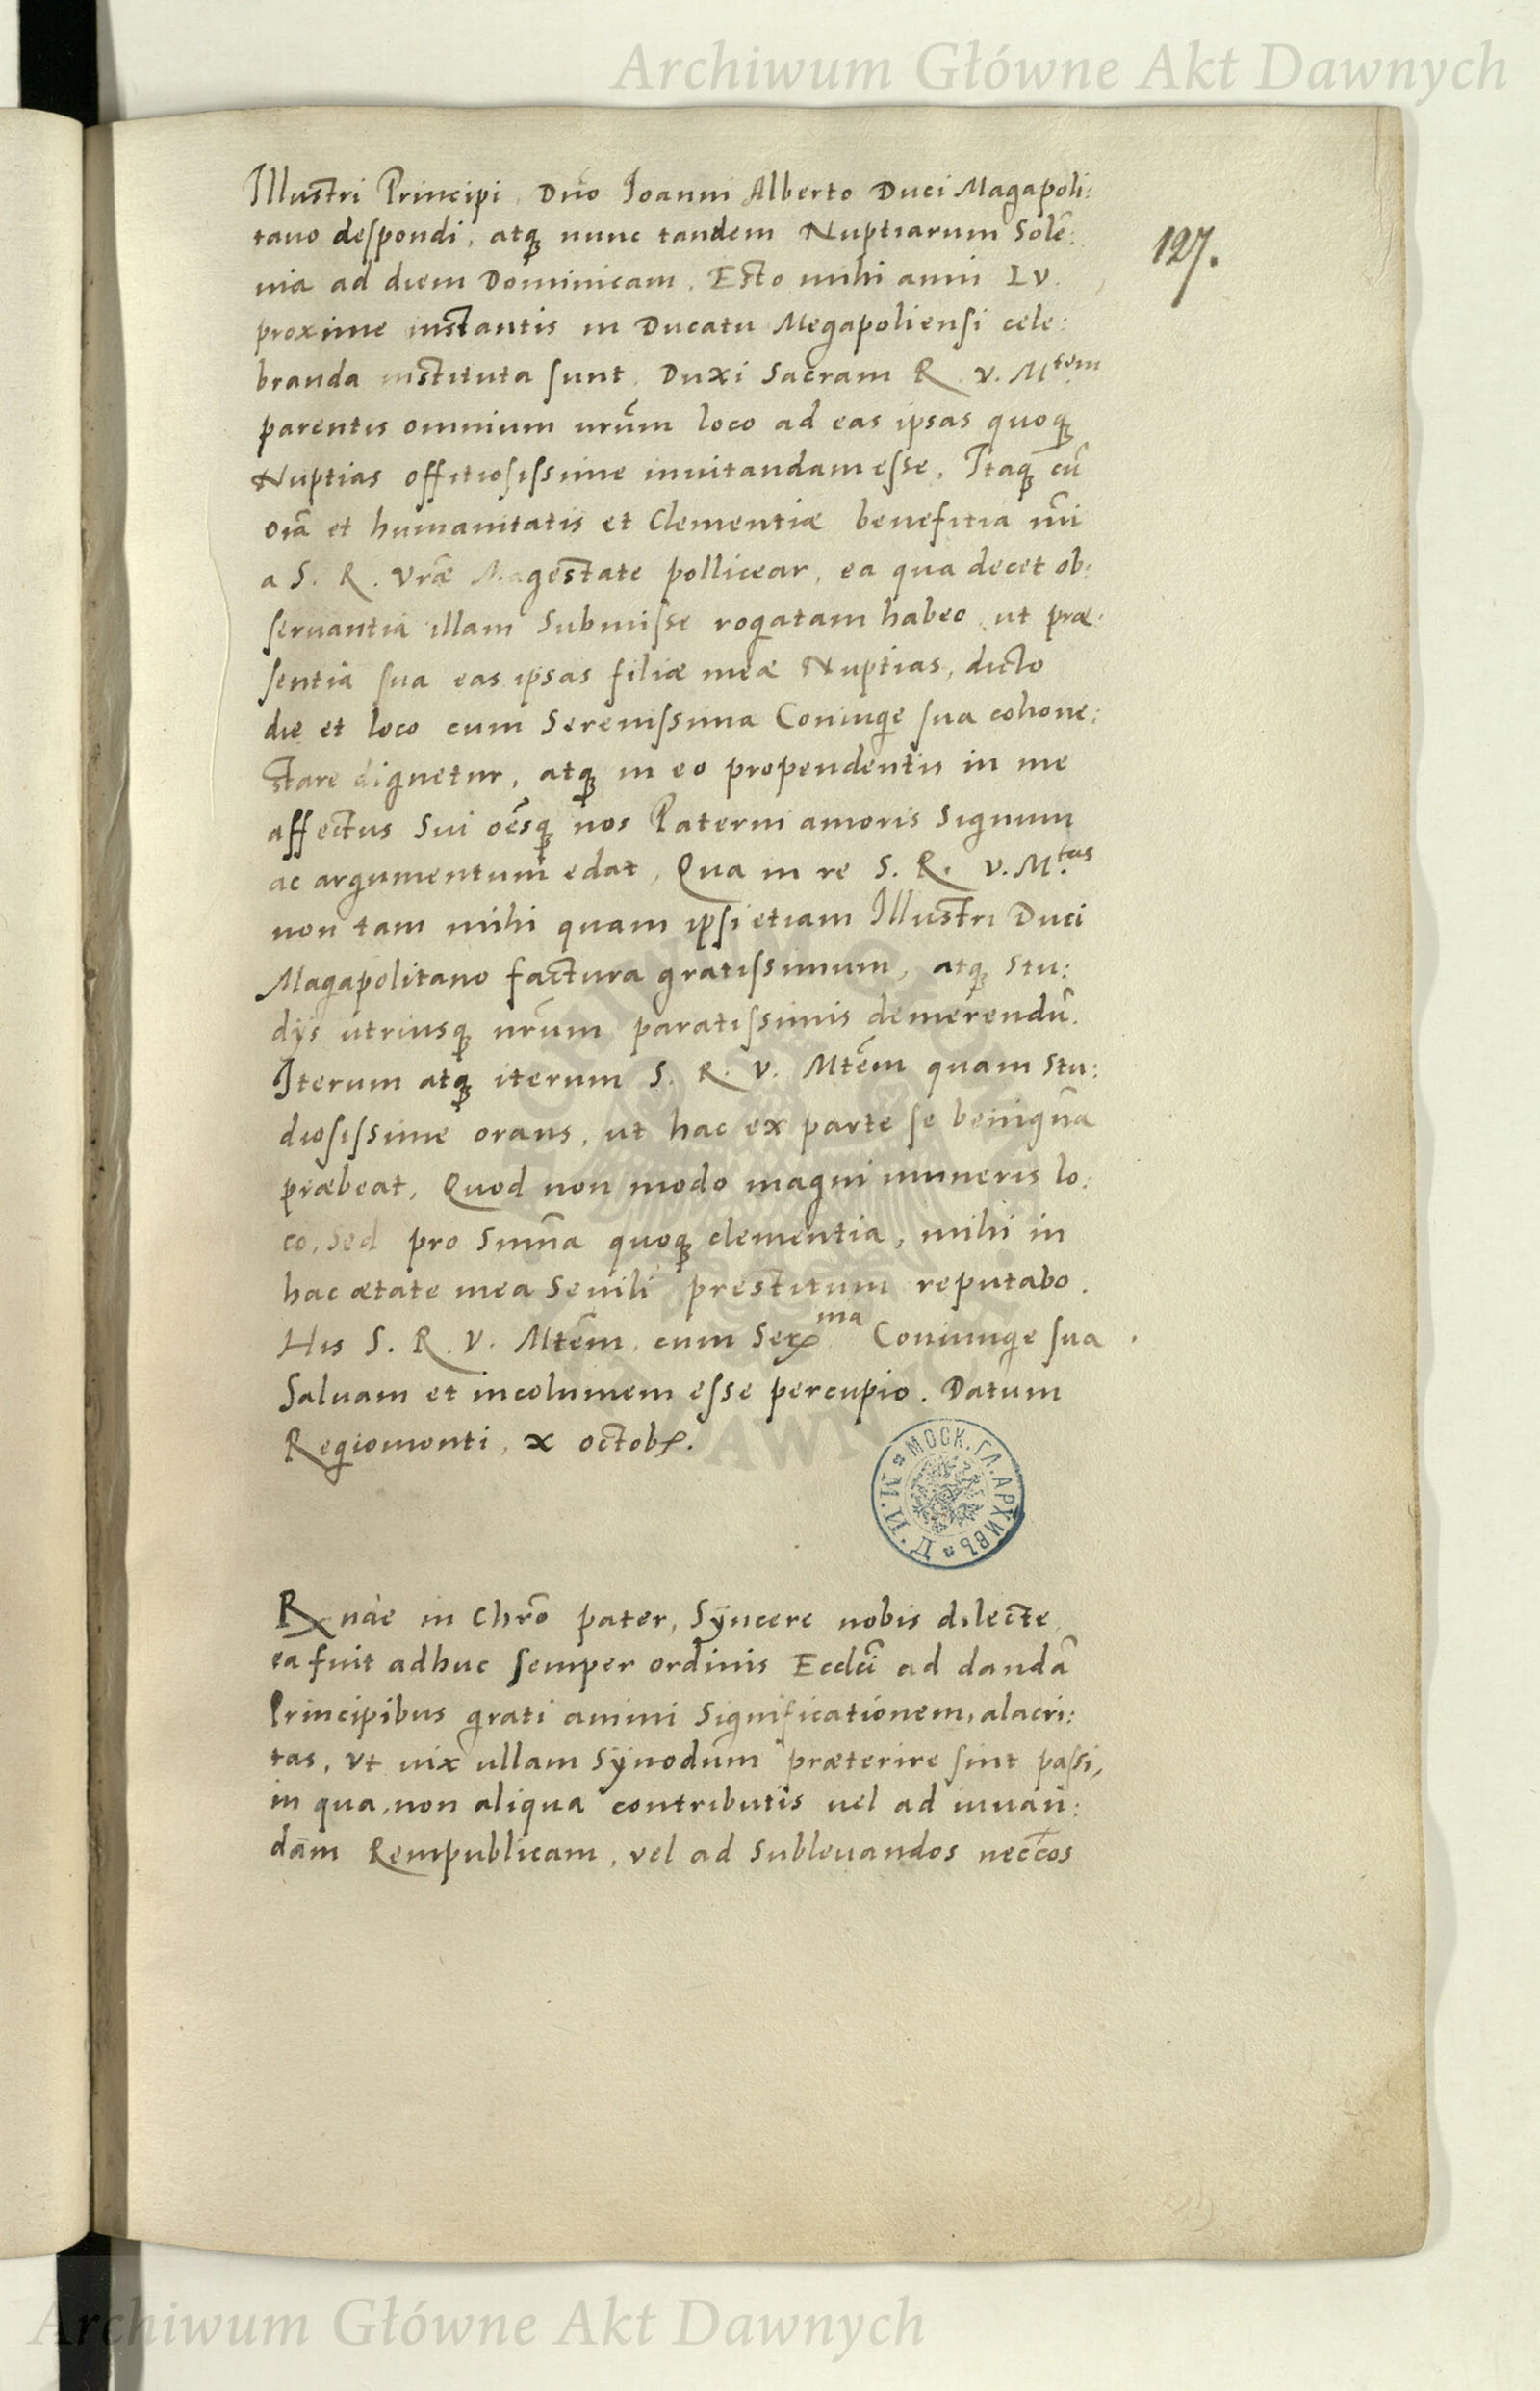 Archiwum Główne Akt Dawnych
Illustri Principi, Dño Joanni Alberto Duci Magapoli:
tano despondi, atq nunc tandem Nuptiarum Solē:
nia ad diem Dominicam. Esto mihi anni LV.
127.
proxime instantis in Ducatu Megapoliensi cele:
branda instituta sunt. Duxi Sacram R. V. M.tem
parentis omnium nrūm loco ad eas ipsas quoq
Nuptias offitiosissime inuitandam esse. Itaq cū
oīa et humanitatis et Clementiæ benefitia mī
a S. R. Vræ Magestate pollicear, ea qua decet ob:
seruantia illam Submisse rogatam habeo, ut præ:
sentia sua eas ipsas filiæ meæ Nuptias, dicto
die et loco cum Serenissima Coniuge sua cohone:
stare dignetur, atq in eo propendentis in me
affectus Sui oēsq nos Paterni amoris Signum
ac argumentum edat, Qua in re S. R. V. M.tas
non tam mihi quam ipsi etiam Illustri Duci
Magapolitano factura gratissimum, atq stu:
dijs utriusq nrūm paratissimis demerendū.
Iterum atq iterum S. R. V. Mtēm quam stu:
diosissime orans, ut hac ex parte se benignā
præbeat, Quod non modo magni muneris lo:
co, sed pro Summā quoq clementia, mihi in
hac ætate mea Senili prestitum reputabo.
His S. R. V. Mtēm. cum Serma Coniunge sua
Saluam et incolumem esse percupio. Datum
Regiomonti, x octobr.
МОСК. ГЛ. АРХИВЪ М. И. Д.
Rnde in Chrō pater, Sÿncere nobis dilecte,
ea fuit adhuc semper ordinis Ecclci ad dandā
Principibus grati animi Significationem, alacri:
tas, ut uix ullam Sÿnodum præterire sint passi,
in qua, non aliqua contributis uel ad iuuan:
dam Rempublicam, vel ad subleuandos neccos
Archiwum Główne Akt Dawnych